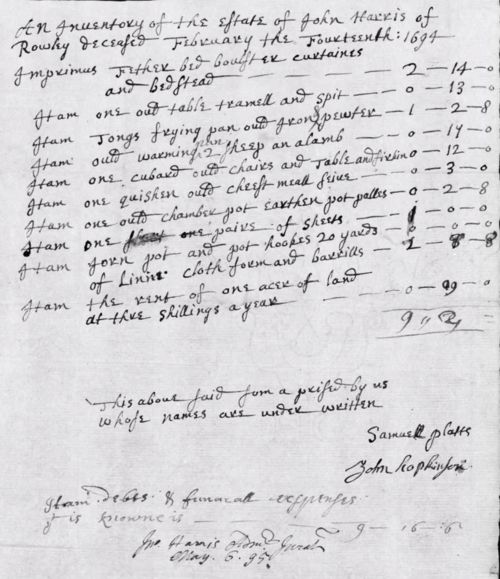 An Inventory of the Estate of John Harris of
Rowley deceased February the Fourteenth: 1694
Imprimus Fether bed boulster curtaines
and bedstead — 2 — 14 — 0
Itam one oud table tramell and spit — 0 — 13 — 0
Itam Tongs frying pan oud Irons pewter — 1 — 2 — 8
Itam oud warming pan 2 sheep an a lamb — 0 — 0
Itam one cubard oud chairs and table and firkin 0 — 12 — 0
Itam one quishen oud chest meall seive — 0 — 3 — 0
Itam one oud chamber pot earthen pot palles — 0 — 2 — 8
Itam one one paire of sheets — 1 — 0 — 0
Itam Iorn pot and pot hookes 20 yards — 0 — 0
of Linne cloth form and barrills — 1 — 8 — 8
Itam the rent of one acer of land
at thre shillings a year — 0 — — 0
9
This above said som a prised by us
whose names are under written
Samuell platts
John hopkinson
Itam debts & funerall expenses
is knowne is — 9 — 16 — 6
Jno Harris Admr Jurat
May. 6. 95